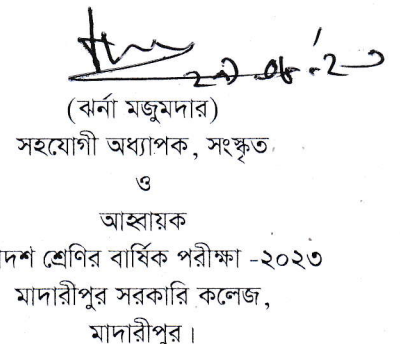 (ঝর্না মজুমদার)
সহযোগী অধ্যাপক, সংস্কৃত
ও
আহ্বায়ক
দশ শ্রেণির বার্ষিক পরীক্ষা -২০২৩
মাদারীপুর সরকারি কলেজ,
মাদারীপুর।